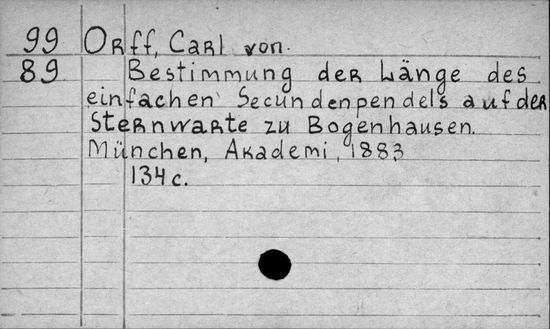 99 Orff, Carl von.
89 Bestimmung der Länge des
einfachen Secundenpendels auf der
Sternwarte zu Bogenhausen.
München, Akademi, 1883
134 c.